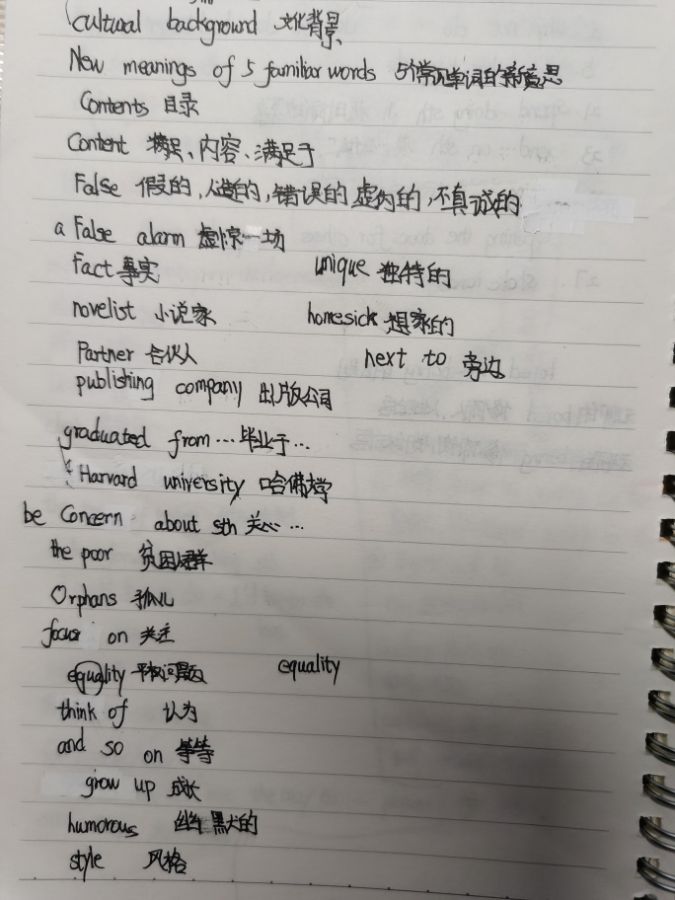 Cultural background 文化背景
New meanings of 5 familiar words 5个常见单词的新意思
Contents 目录
Content 满足、内容、满足于
False 假的,人造的,错误的 虚伪的,不真诚的
a False alarm 虚惊一场
Fact 事实 unique 独特的
novelist 小说家 homesick 想家的
Partner 合伙人 next to 旁边
publishing company 出版公司
graduated from … 毕业于 …
Harvard university 哈佛大学
be Concern about sth 关心 …
the poor 贫困人群
Orphans 孤儿
focus on 关注
equality 平权问题 equality
think of 认为
and so on 等等
grow up 成长
humorous 幽默的
style 风格